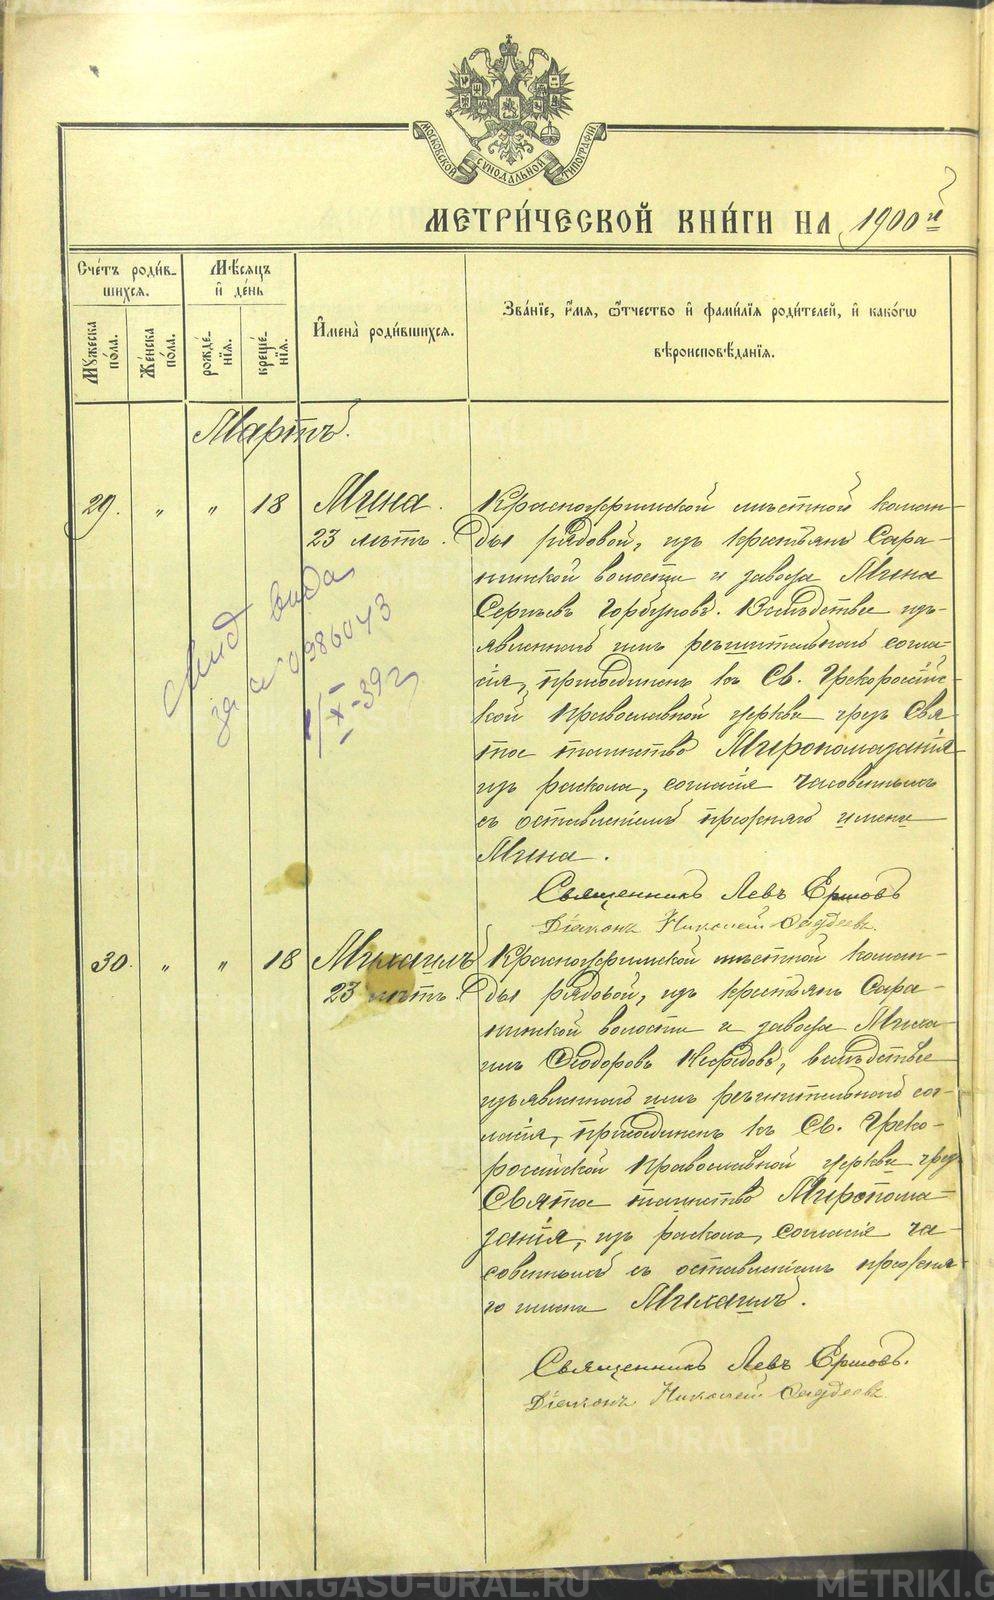 МОСКОВСКОЙ СѴНОДАЛЬНОЙ ТИПОГРАФІИ
МЕТРИ́ЧЕСКОЙ КНИ́ГИ НА 1900 й
Сче́тъ роди́в-
шихся.
Мѣ́сяцъ
и҆ де́нь
Мꙋ́жеска
по́ла.
Же́нска
по́ла.
рожде́-
нїя.
креще́-
нїя.
И҆мена̀ роди́вшихся.
Зва́нїе, и҆́мя, ѻ҆́тчество и҆ фами́лїя роди́телей, и҆ како́гѡ
вѣроисповѣ́данїя.
Мартъ.
29. „ „ 18 Мина.
23 лѣтъ.
Красноуфимской мѣстной коман-
ды рядовой, изъ крестьянъ Сара-
нинской волости и завода Мина
Сергѣевъ Горбуновъ. Вслѣдствіе изъ-
явленнаго имъ рѣшительнаго согла-
сія, присоединенъ къ Св. Грекороссійс-
кой Православной церкви чрезъ Свя-
тое таинство Мѵропомазанія
изъ раскола, согласія часовенныхъ
съ оставленіемъ прежняго имени
Мина.
Священникъ Левъ Ершовъ
Діаконъ Николай
вида
за № 0986043
1/X-39 г
30. „ „ 18 Михаилъ
23 лѣтъ.
Красноуфимской мѣстной коман-
ды рядовой, изъ крестьянъ Сара-
нинской волости и завода Миха-
илъ Ѳеодоровъ вслѣдствіе
изъявленнаго имъ рѣшительнаго сог-
ласія, присоединенъ къ Св. Греко-
россійской Православной церкви чрезъ
Святое таинство Мѵропома-
занія, изъ раскола, согласіе ча-
совенныхъ съ оставленіемъ прежня-
го имени Михаилъ.
Священникъ Левъ Ершовъ.
Діаконъ Николай
METRIKI.GASO-URAL.RU